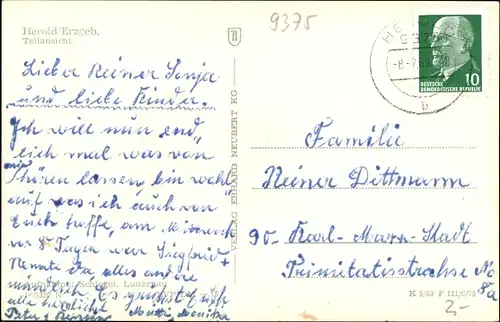 9375
Herold/Erzgeb.
Teilansicht
HEROLD
-8-7.69
b
10
DEUTSCHE
DEMOKRATISCHE REPUBLIK
Lieber Reiner Sonja
und liebe Kinder.
Ich will nun end"
lich mal was von
mir
hören lassen, bin wohl
auf was ich auch von
Euch hoffe, am Mittwoch
vor 8 Tagen war Siegfried
Renate da, alles andre
mündlich. Es grüßt Euch
alle herzlichst Mutti, Monika
Peter
Schlegel, Lunzenau
VERLAG ERHARD NEUBERT KG
Familie
Reiner Dittmann
90- Karl-Marx-Stadt
Trinitatisstrasse No
8a
K 5/63 F
2,-